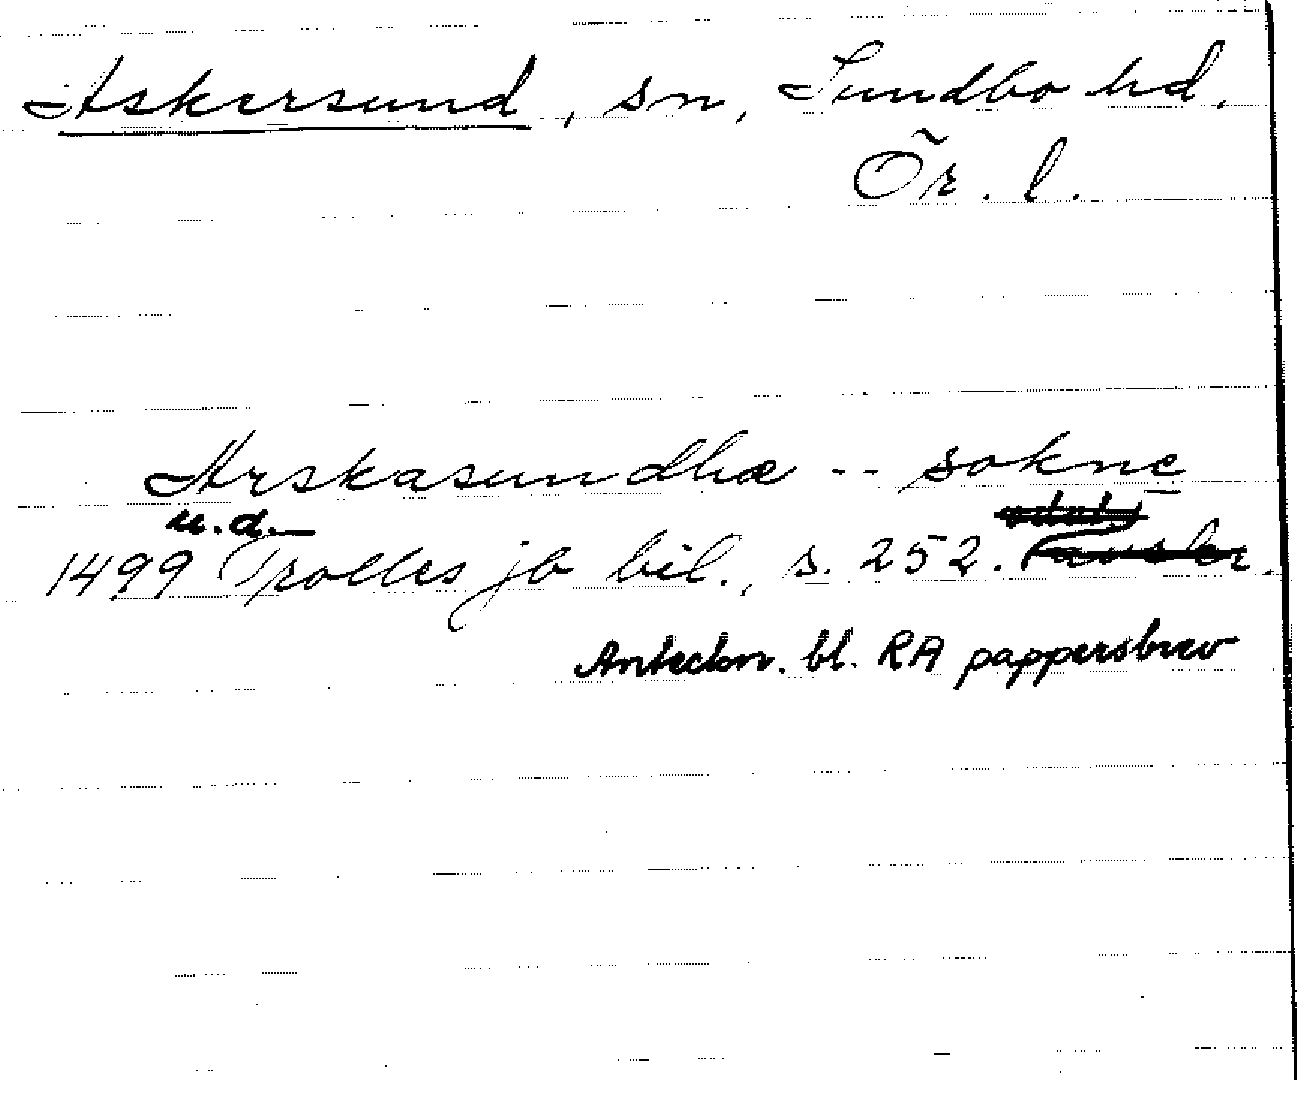 Askersund, sn, Sundbo hd,
Ör. l.
Arskasundhæ -- sokne
u.d.
1499 Trolles jb bil., s. 252.
Anteckn. bl. RA pappersbrev